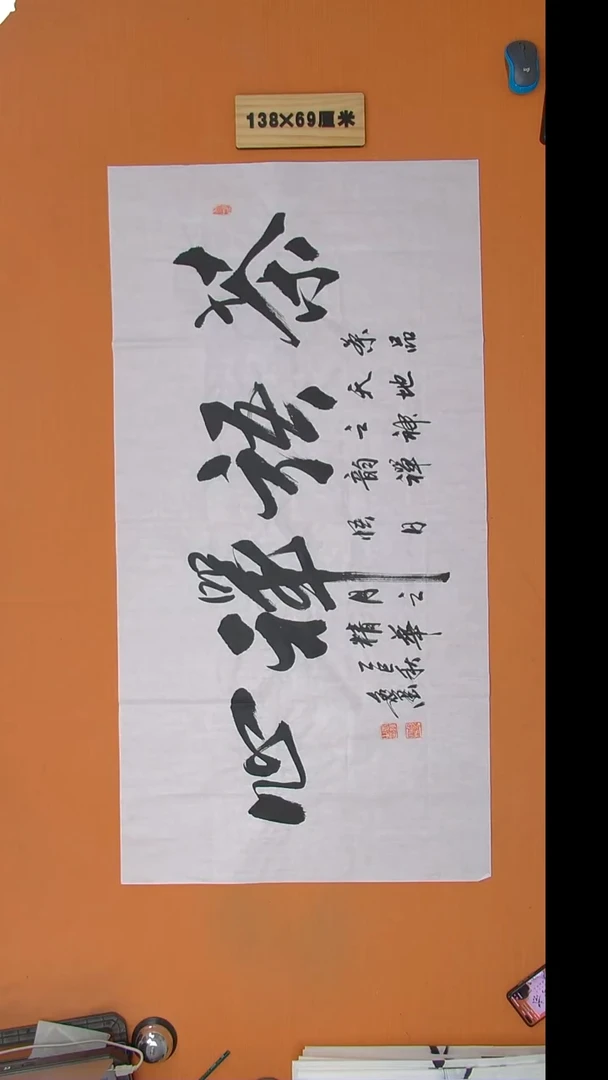 138×69厘米
茶语禅心
品茶天地之神韵
悟禅日月之精华
乙巳秋